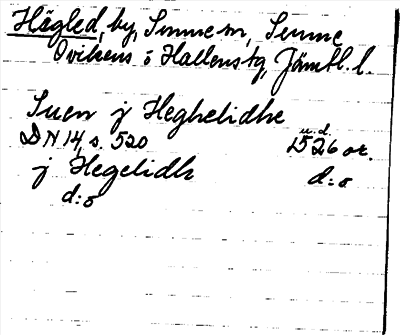 Hägled, by, Sunne sn, Sunne
Ovikens o Hallens tg, Jämtl. l.
Suen j Heghelidhe
u.d.
DN 14, s. 520 1526 or.
j Hegelidh d:o
d:o